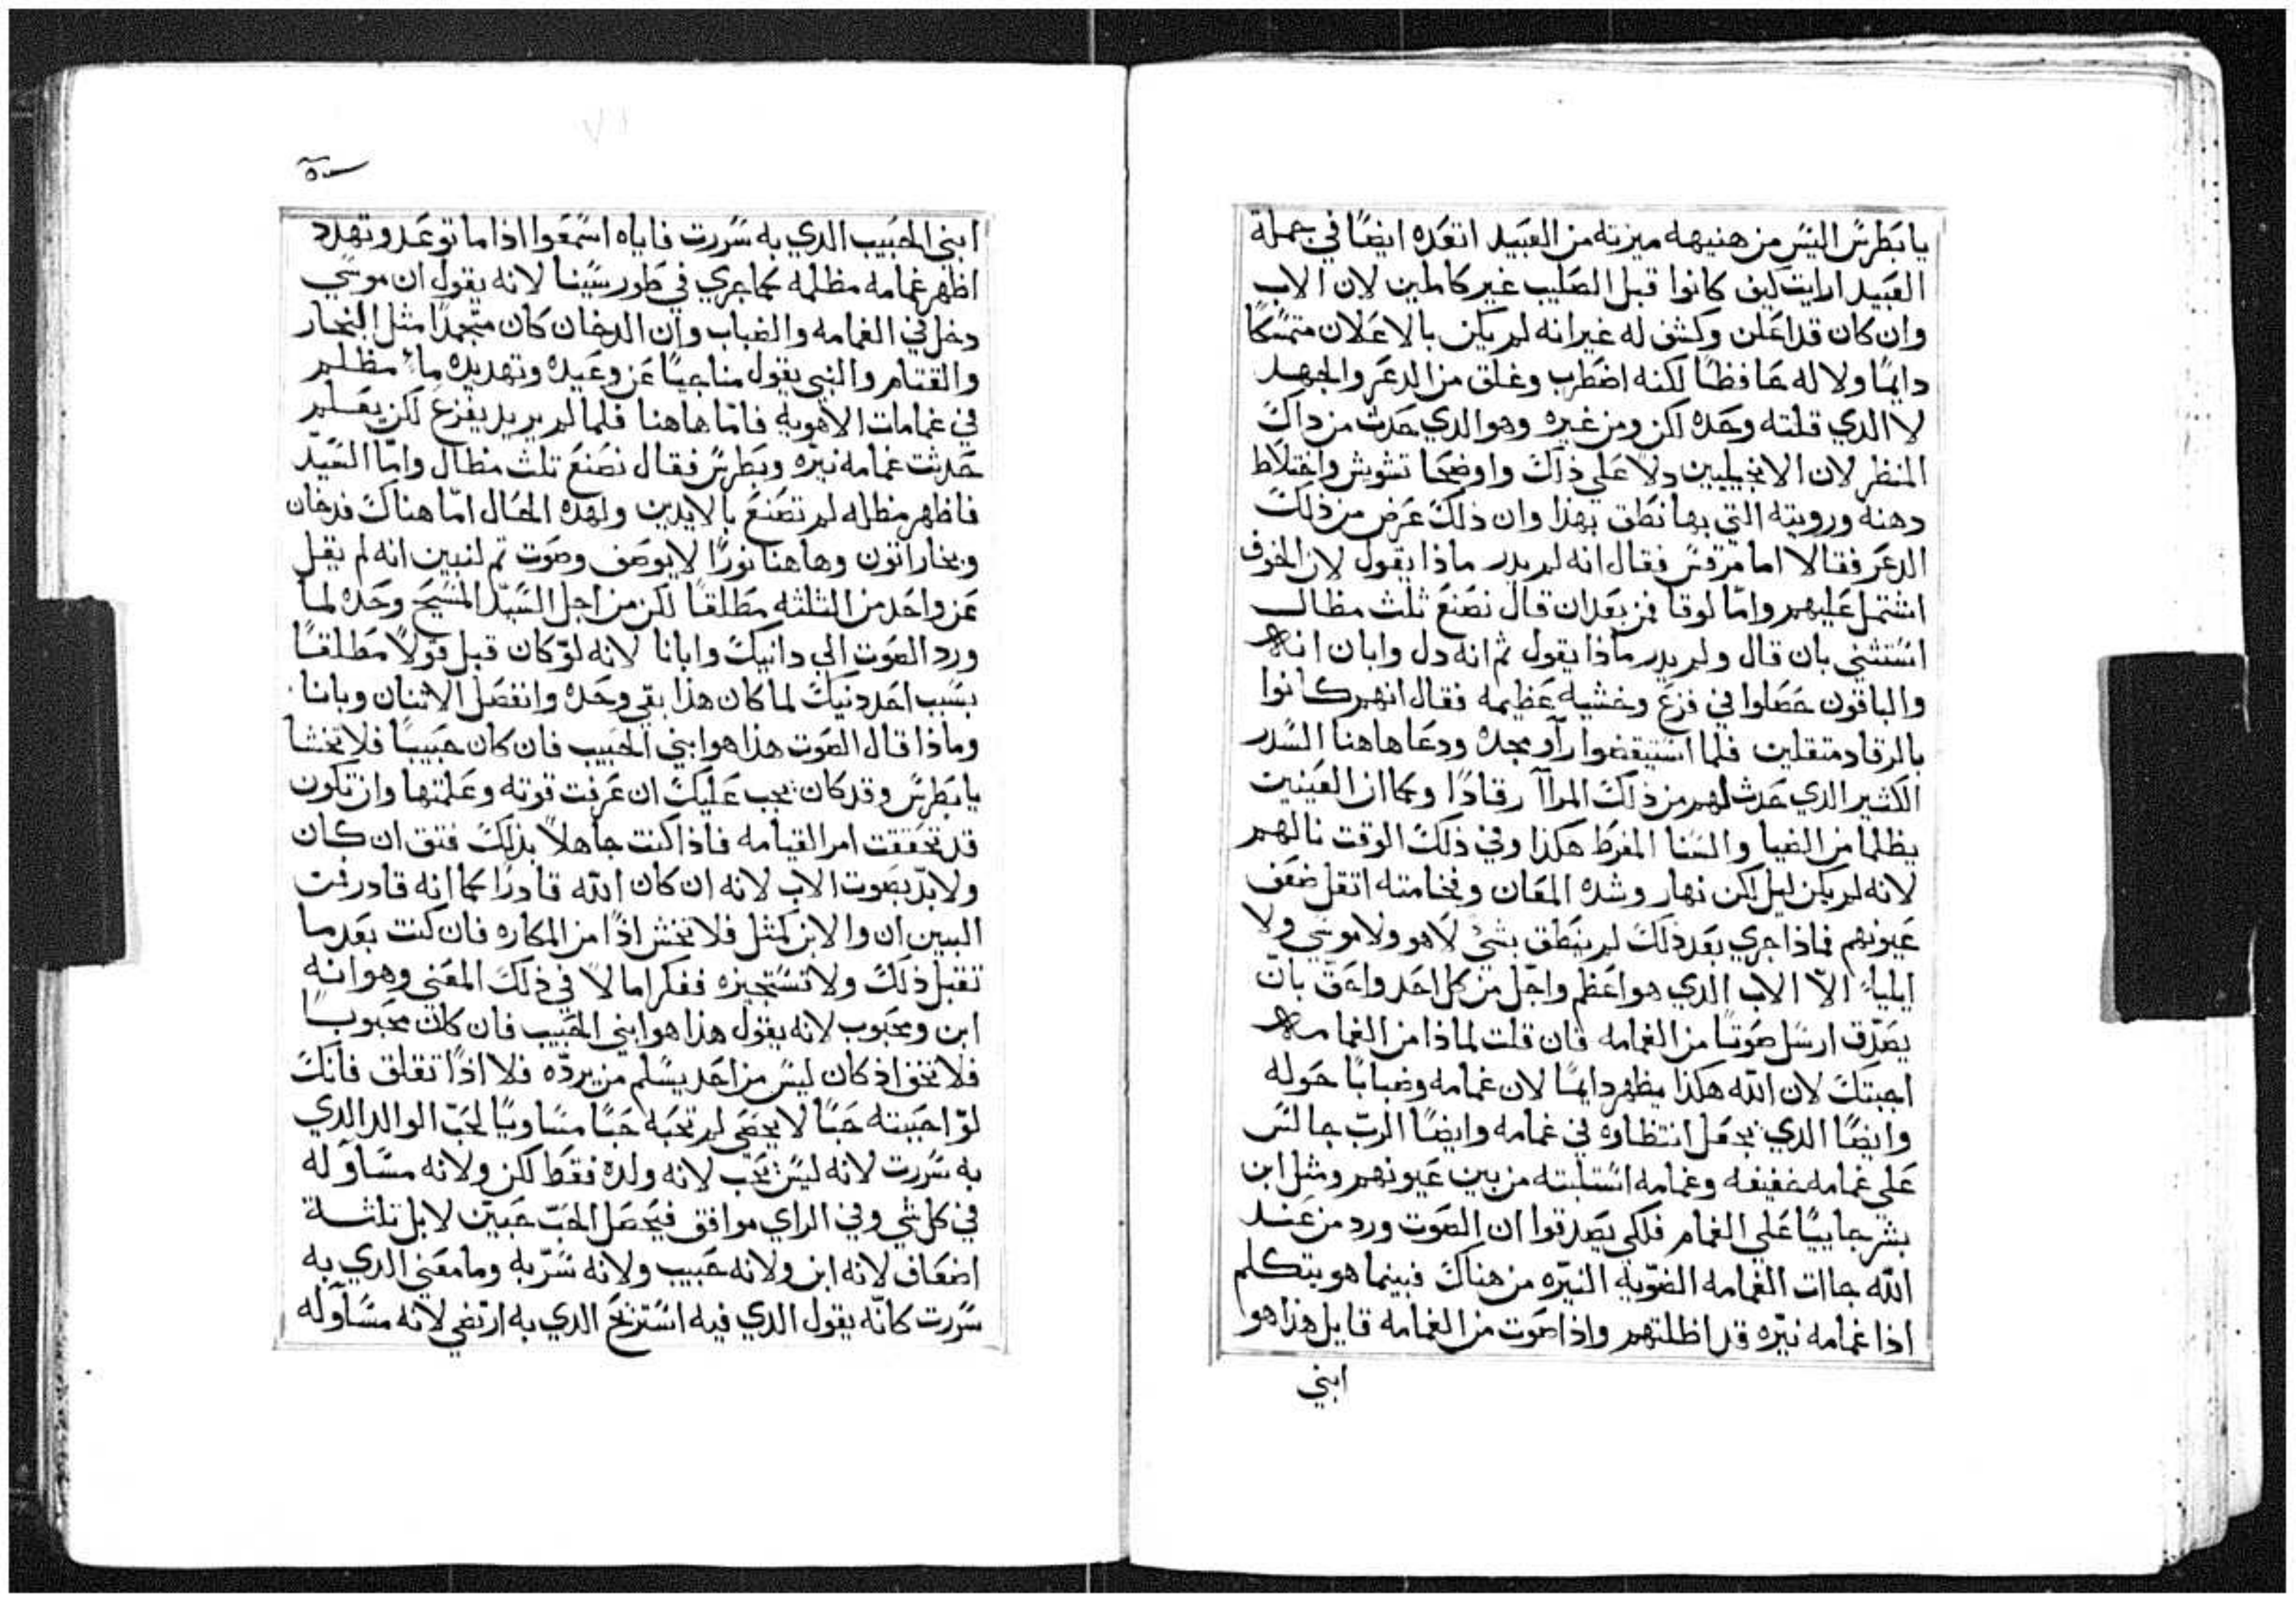 يا بطرس اليس من هنيهه ميزته من العبيد اتعده ايضًا في جملة
العبيد ارايت كيف كانوا قبل الصليب غير كاملين لان الاب
وان كان قد اعلن وكشف له غير انه لم يكن بالاعلان متمسكًا
دايمًا ولا له حافظًا لكنه اضطرب وغلق من الدعر والجهد
لا الدي قلته وحده لكن ومن غيره وهو الدي حدث من داك
المنظر لان الانجيليين دلا علي ذاك واوضحا تشوش واختلاط
دهنه ورويته التي بها نطق بهذا وان ذلك عرض من ذلك
الدعر فقالا اما مرقس فقال انه لم يدر ماذا يقول لان الخوف
اشتمل عليهم وامّا لوقا فمن بعد ان قال نصنع ثلث مظال
استثني بان قال ولم يدر ماذا يقول ثم انه دل وابان انه
والباقون حصلوا في فزع وخشيه عظيمه فقال انهم كانوا
بالرقاد متقلين فلما استيقضوا رآو مجده ودعا هاهنا السدر
الكثير الدي حدث لهم من ذلك المرآآ رقادًا وكما ان العينين
يظلما من الضيا والسنا المفرط هكذا وفي ذلك الوقت نالهم
لانه لم يكن ليل لكن نهار وشده المعان وفخامته اتقل ضعف
عيونهم فماذا جري بعد ذلك لم ينطق بشئ لاهو ولا موسي ولا
ايلياء الاّ الاب الدي هو اعظم واجل من كل احد واحق بانّ
يصدّق ارسل صوتًا من الغمامه فان قلت لماذا من الغمامه
اجبتك لان الله هكذا يظهر دايمًا لان غمامه وضبابًا حوله
وايضًا الدي يجعل انتظاره في غمامه وايضًا الربّ جالس
علي غمامه خفيفه وغمامه استلبته من بين عيونهم ومثل ابن
بشر جاييًا علي الغمام فلكي يصدقوا ان الصوت ورد من عند
الله جاات الغمامه الضوّيه النيّره من هناك فبينما هو يتكلم
اذا غمامه نيّره قد اظلتهم واذا صوت من الغمامه قايل هذا هو
ابني
ابني الحبيب الدي به سررت فاياه اسمعوا اذا ما توعد وتهدد
اظهر غمامه مظلمه كما جري في طور سينا لانه يقول ان موسي
دخل في الغمامه والضباب وان الدخان كان متجمدًا مثل البخار
والقتام والنبي يقول مناجيًا عن وعيده وتهديده ماء مظلم
في غمامات الاهويه فامّا هاهنا فلما لم يريد يفزع لكن يعلم
حدثت غمامه نيّره وبطرس فقال نصنع تلث مظال وامّا السيّد
فاظهر مظله لم تصنع بالايدين ولهده الحال امّا هناك فدخان
وبخار اتون وهاهنا نورًا لا يوصف وصوت تم لنبين انه لم يقل
عن واحد من الثلثه مطلقًا لكن من اجل السيّد المسيح وحده لما
ورد الصوت الي دانيك وابانا لانه لوّ كان قيل قولاً مطلقًا
بسبب احد دنيك لما كان هذا بقي وحده وانفصل الاثنان وبانا
وماذا قال الصوت هذا هو ابني الحبيب فان كان حبيبًا فلا تخشا
يا بطرس وقد كان يجب عليك ان عرفت قوته وعلمتها وان تكون
قد تحققت امر القيامه فاذا كنت جاهلاً بذلك فتق ان كان
ولا بدّ بصوت الاب لانه ان كان الله قادرًا كما انه قادر فمن
البين ان والابن كمثل فلا تخش اذًا من المكاره فان كنت بعد ما
تقبل ذلك ولا تستجيزه ففكر امالا في ذلك المعني وهو انه
ابن ومحبوب لانه يقول هذا هو ابني الحبيب فان كان محبوبًا
فلا تخف اذ كان ليس من احد يسلم من يردّه فلا اذًا تقلق فانك
لوّ احببته حبًا لا يحصي لم تحبه حبًا مساويًا لحبّ الوالد الدي
به سررت لانه ليس يحبّ لانه ولده فقط لكن ولانه مساوٍ له
في كل شي وفي الراي موافق فيحصل الحبّ حبيّن لا بل تلثة
اضعاف لانه ابن ولانه حبيب ولانه سرّ به وما معني الدي به
سررت كانّه يقول الدي فيه استرتح الدي به ارتضي لانه مساوٍ له